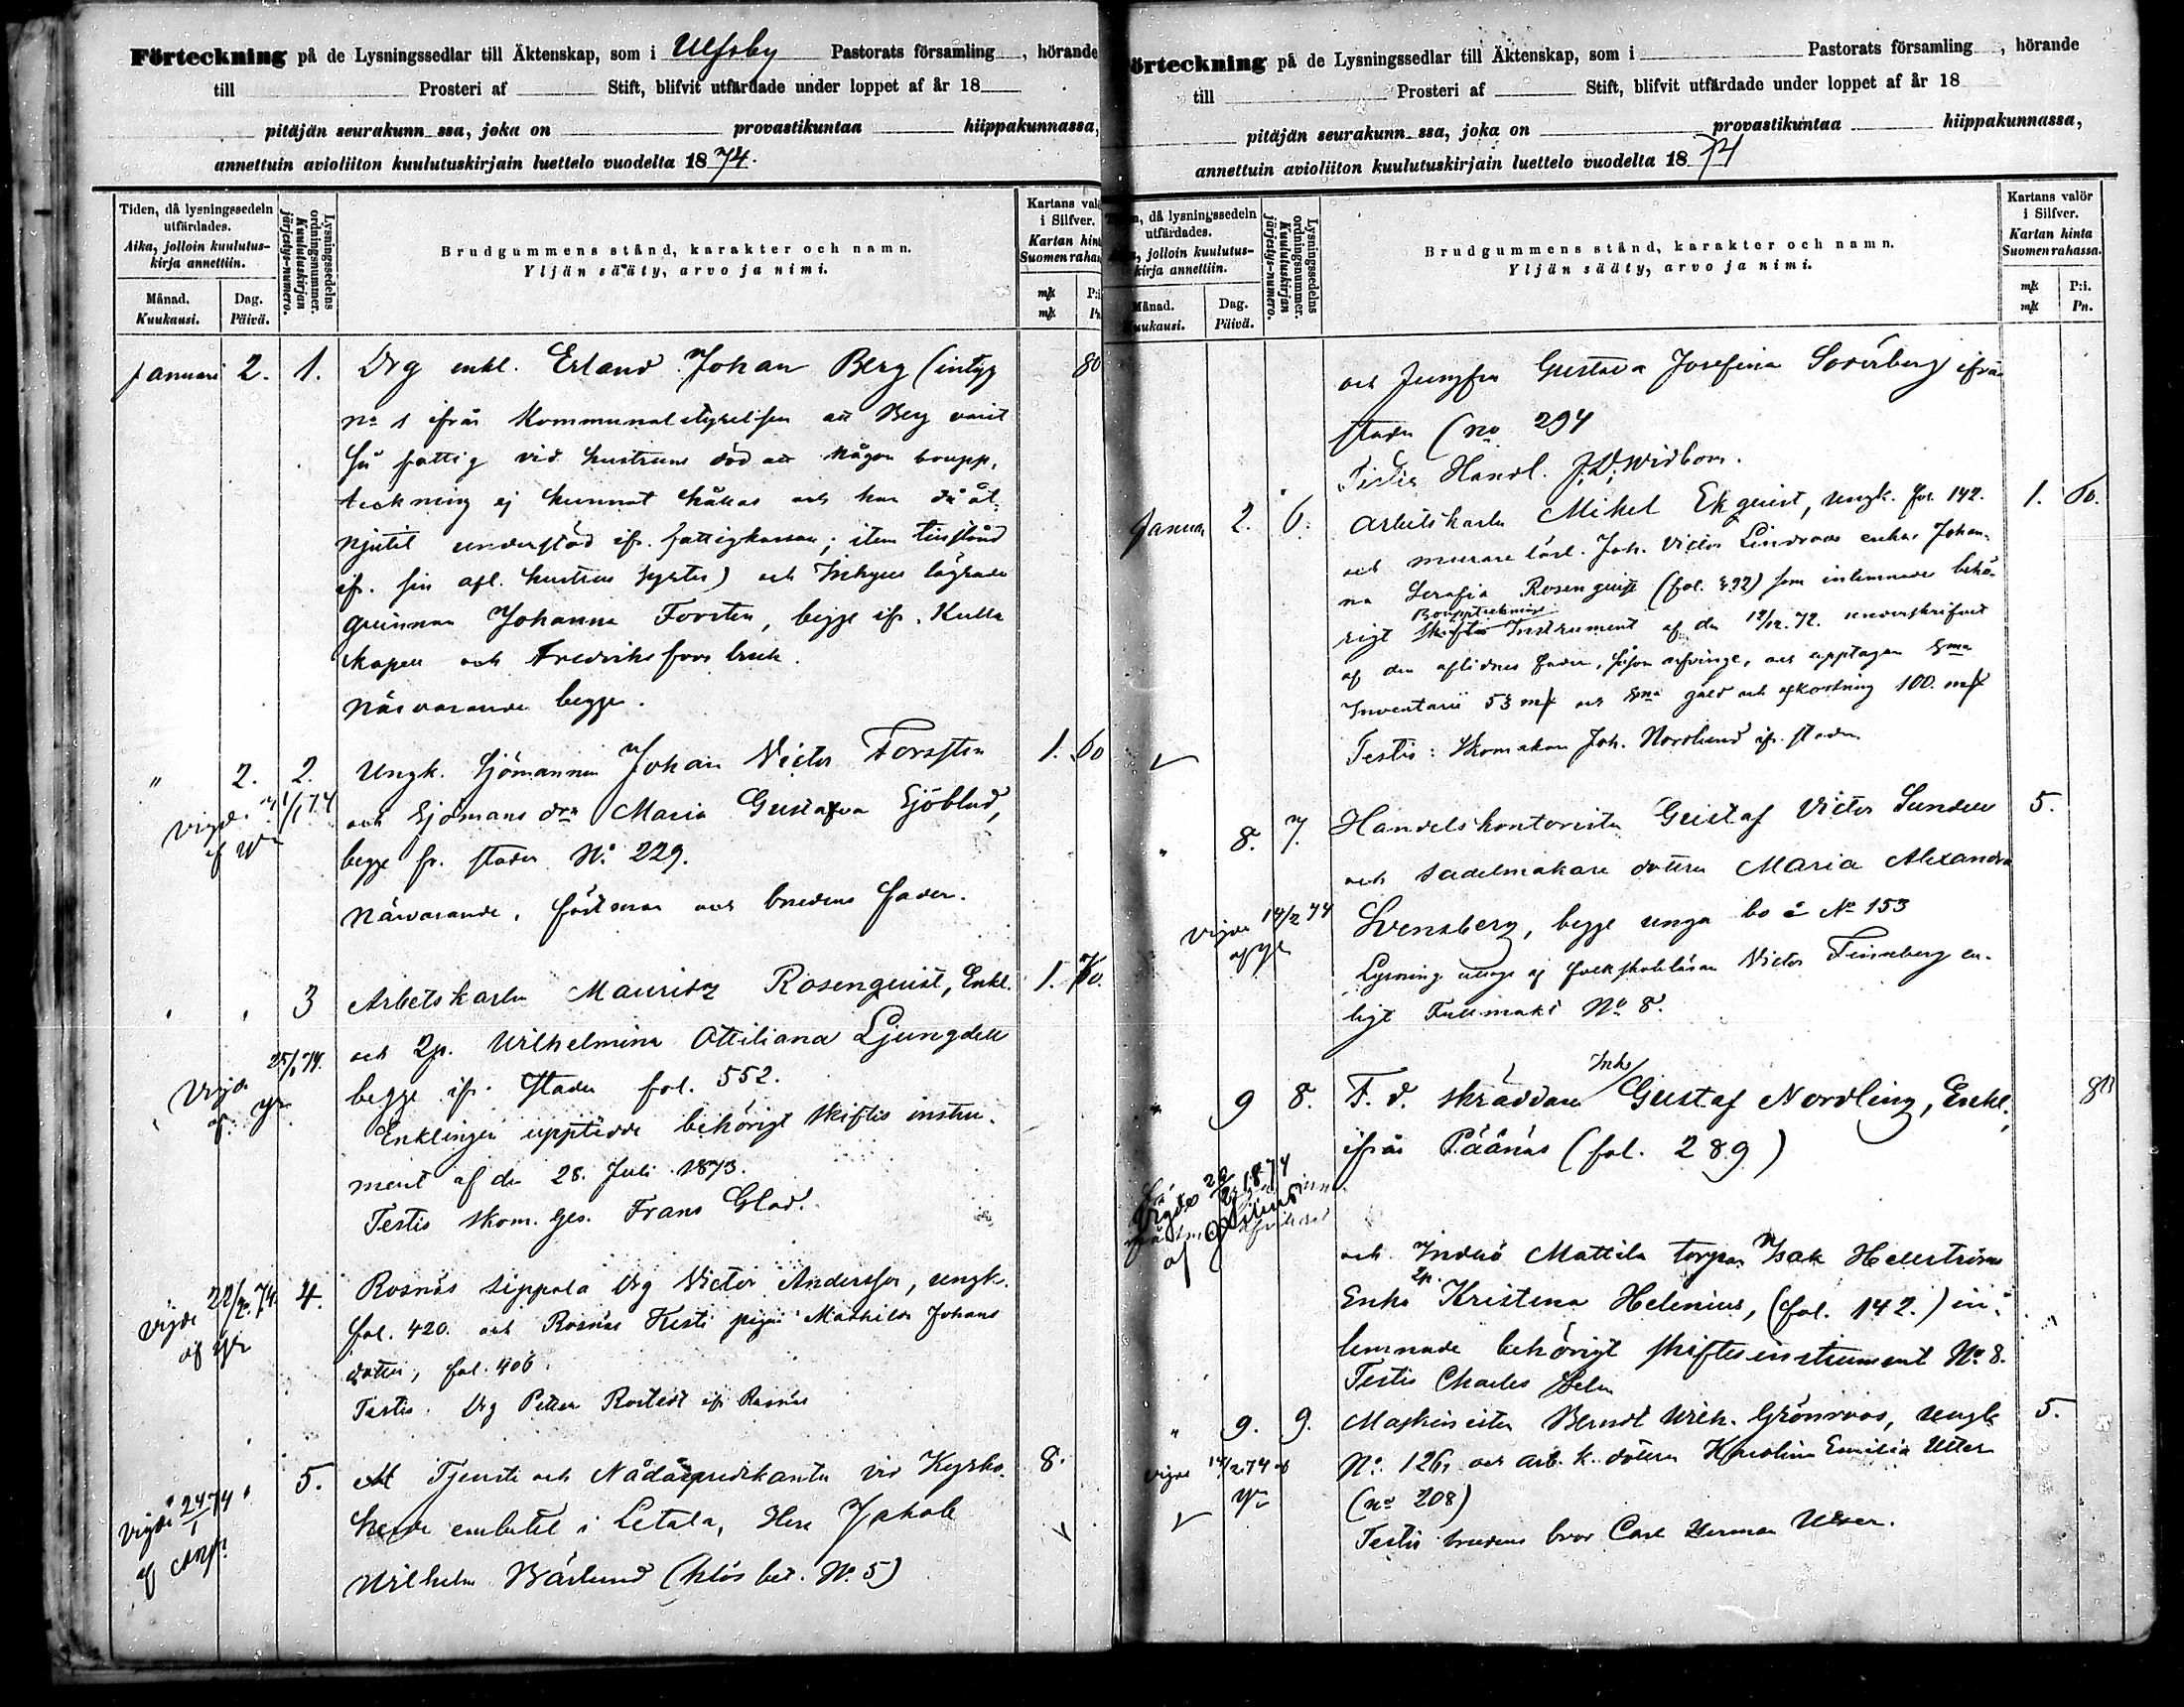 Förteckning på de Lysningssedlar till Äktenskap, som i Ulfsby Pastorats församling , hörande
till Prosteri af Stift, blifvit utfärdade under loppet af år 18
pitäjän seurakunn ssa, joka on provastikuntaa hiippakunnassa,
annettuin avioliiton kuulutuskirjain luettelo vuodelta 1874.
Tiden, då lysningssedeln utfärdades.
Aika, jolloin kuulutus-
kirja annettiin.
Månad.
Kuukausi.
Dag.
Päivä.
Lysningssedelns
ordningsnummer.
Kuulutuskirjan
järjestys-numero.
Brudgummens stånd, karakter och namn.
Yljän sääty, arvo ja nimi.
Kartans val
i Silfver.
Kartan hint
Suomen raha
Januari 2. 1. Drg enkl. Erland Johan Berg (intyg 80
no 1 ifrån Kommunalstyrelsen att Berg varit
så fattig vid hustruns död att någon boupp-
teckning ej kunnat hållas och har då åt-
njutit understöd ifr. fattigkassan; item
ifr. sin afl. hustrus syster) och Inhyses
qvinnan Johanna Forsten, begge ifr. Kulla
kapell och Fredriksfors bruk.
Närvarande begge.
" 2. 2. Ungk. Sjömannen Johan Victor Forssten 1. 60
och Sjömans dr Maria Gustafva Sjöblad,
begge fr. staden No. 229.
Närvarande, fästman och brudens fader.
3 Arbetskarlen Mauritz Rosenquist, Enkl. 1. 60.
och 2p. Wilhelmina Ottiliana Ljungdell
begge ifr. staden fol. 552.
Enklingen uppteedde behörigt skiftes instru-
ment af den 28. Juli 1873.
Testis skom. ges. Frans Glad.
Vigde 22/2.74. 4. Rosnäs Sippola Drg Victor Andersson, ungk.
fol. 420. och Rosnäs Kesti pigan Mathilda Johans
dotter, fol. 406.
Testis. Drg Petter Rostedt ifr Rosnäs
5. At Tjenste och Nådårspredikanten vid Kyrko- 8.
herde embetet i Letala, Herr Jakob
Wilhelm Bärlund (hlös bet. No. 5)
örteckning på de Lysningssedlar till Äktenskap, som i Pastorats församling , hörande
till Prosteri af Stift, blifvit utfärdade under loppet af år 18
pitäjän seurakunn ssa, joka on provastikuntaa hiippakunnassa,
annettuin avioliiton kuulutuskirjain luettelo vuodelta 1874
n, då lysningssedeln
utfärdades.
, jolloin kuulutus-
kirja annettiin.
Månad.
uukausi.
Dag.
Päivä.
Lysningssedelns
ordningsnummer.
Kuulutuskirjan
järjestys-numero.
Brudgummens stånd, karakter och namn.
Yljän sääty, arvo ja nimi.
Kartans valör
i Silfver.
Kartan hinta
Suomen rahassa.
P:i.
Pn.
och Jungfru Gustava Josefina Söderberg ifrån
staden (no 294
Testis Handl. J.D. Widbom.
Januari 2. 6. Arbetskarlen Mikel Ekquist, ungk. fol. 142. 1. 60.
och murare lärl. Joh. Victor Lindroos enka Johan-
na Serafia Rosenquist (fol. 892) som inlemnade behö-
Boupptecknings
rigt skiftes Instrument af den 12/12.72. underskrifvet
af den aflidnes fader, såsom arfvinge, och upptagen Sma
Inventarii 53 mk och Sma gäld och afkortning 100. mk
Testis: Skomakare Joh. Nordlund ifr. staden
" 8. 7. Handelskontoristen Gustaf Victor Sundell 5.
och sadelmakare dottern Maria Alexandra
Svensberg, begge unga bo å No 153
Vigde 14/2 74
Lysning uttogs af folkskoleläraren Victor Finneberg en-
ligt Fullmakt No 8.
Inh.
" 9 8. F. d. skräddare Gustaf Nordling, Enkl., 80
ifrån Päänäs (fol. 289)
och Inderö Mattila torpar Isak Hellströms
Enka 2p. Kristina Helenius, (fol. 142.) in-
lemnade behörigt skiftesinstrument No. 8.
Testis Charles Helin
" 9. 9. Maskinisten Berndt Wilh. Grönroos, ungk 5.
No. 126, och arb. k. dottern Karolina Emilia Utter
(no 208)
Testis brudens bror Carl Herman Utter.